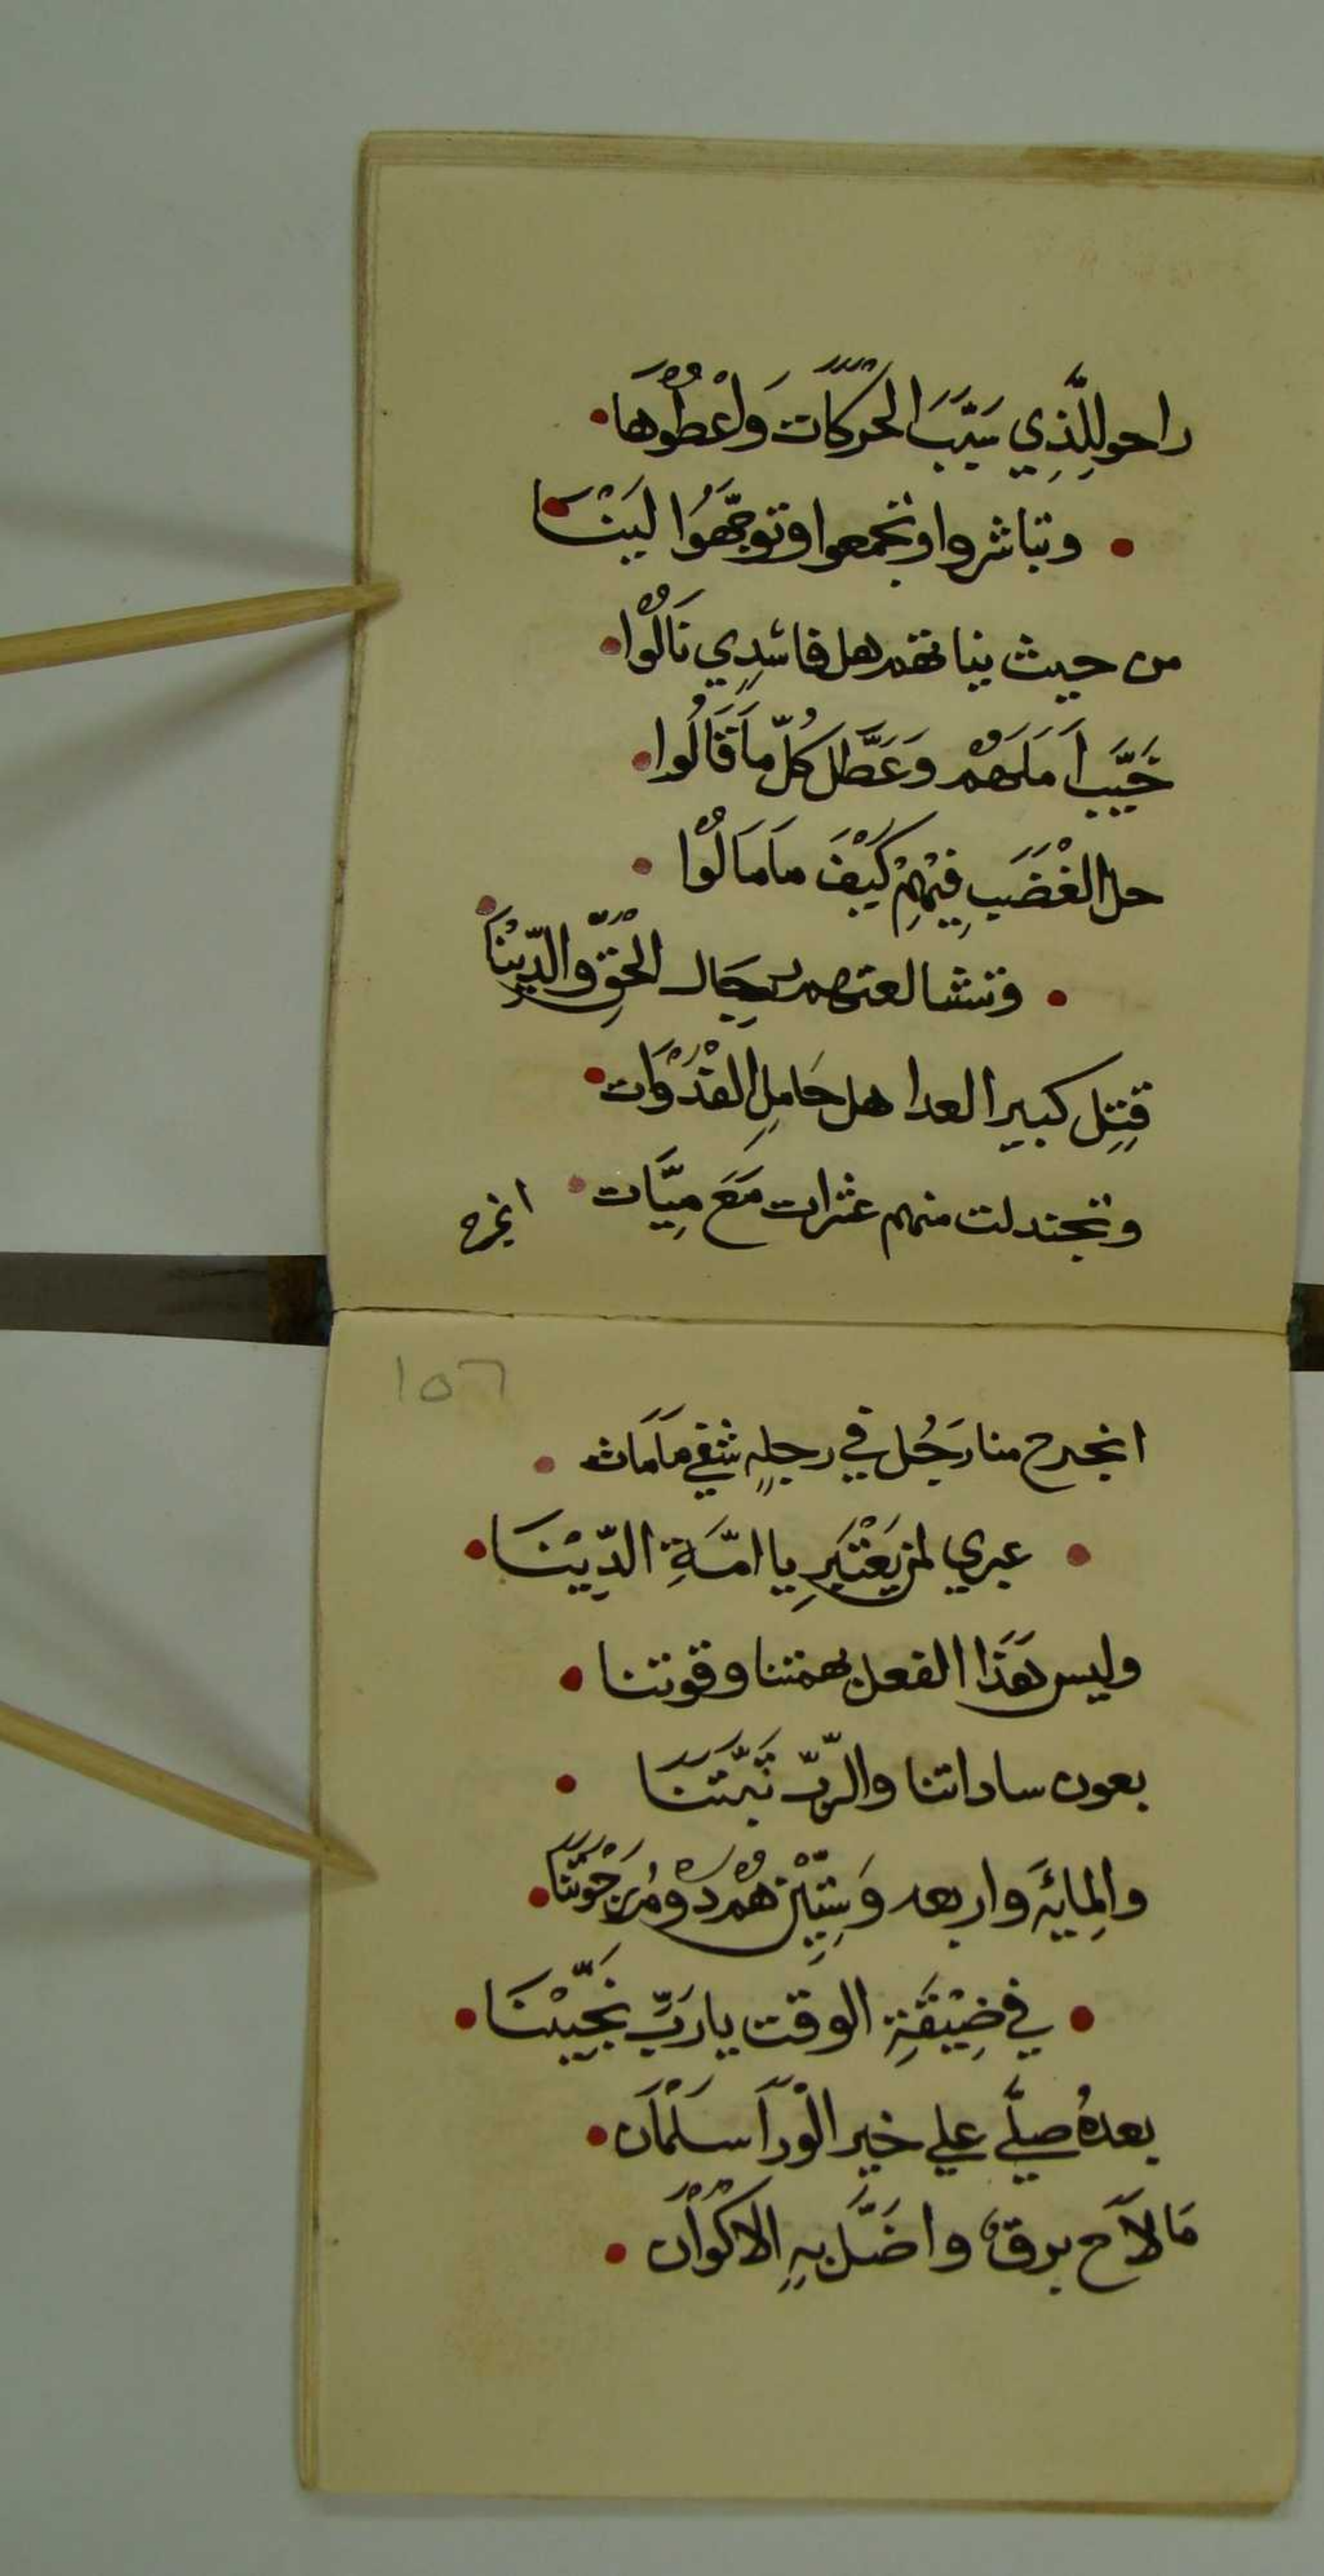 راحو لِلَّذِي سَبَّبَ الحَرَكَات وَاعْطُوْهَا
وتباشروا وتجمعوا وتوجَّهَوُا لَيَنْنَا
من حيث نياتهم هل فاسْدِي نَالُوْا
خَيَّبَ اَمَلَهُم وَعَطَّلَ كُلّ مَا قَالُوا
حل الغْضَبَ فِيْهِمْ كَيْفَ مَا مَالُوْا
وتشالعتهم رجَال الحَقِّ والدِّيْنَا
قِتِل كبير العدا هل حَامِل القدْوَات
وتجندلت منهم عشرات مَعَ مِيَّات
انجرح
١٥٦
انجرح منا رَجُل في رجلهِ شفي مَا مَات
عبري لمن يَعْتَبِر يا امَّةِ الدِّيْنَا
وليس هَذَا الفعل بهمتنا وقوتنا
بعون ساداتنا والرّبّ ثَبَّتَنَا
والمِايَه واربعه وَسِتِّيْن هُمْ دوم نَجْوَتَنَا
في ضِيْقَةِ الوقت يا رَبِّ نَجِّيْنَا
بعدهُ صلِّي علي خير الْوَرَآ سَلْمَان
مَا لآح برقٌ واضَلّ بهِ الاكْوَان